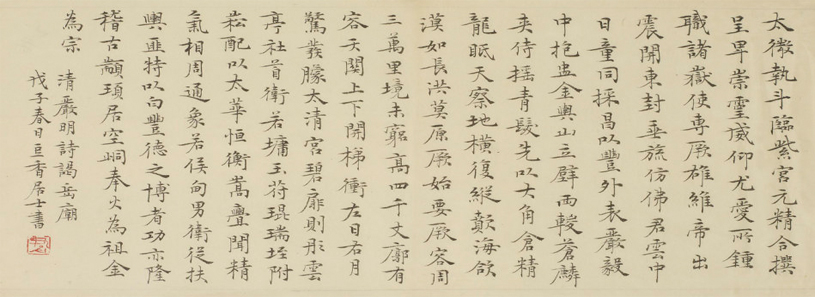 太微執斗臨紫宮元精合撰
呈卑崇靈威仰尤愛所鍾
職諸嶽使專厥雄維帝出
震開東封垂旒仿佛君雲中
日童同採昌以豐外表嚴毅
中抱盅金輿山立壁兩輚蒼麟
夾侍搖青髮先以大角倉精
龍眂天察地橫復縱顛海頷
漠如長洪莫原厥始要厥容周
三萬里境未窮高四千丈廓有
容天關上下開梯衝左日右月
驚發朦太清宮碧扉則彤雲
亭社首衛若墉玉符琨瑞坒附
菘配以太華恒衡嵩疊聞精
氣相周通象若侯甸男衛從扶
輿匪特以白豐德之博者功亦隆
稽古顓頊居空峒奉火為祖金
為宗 清嚴明詩謁岳廟
戊子春日亘香居士書